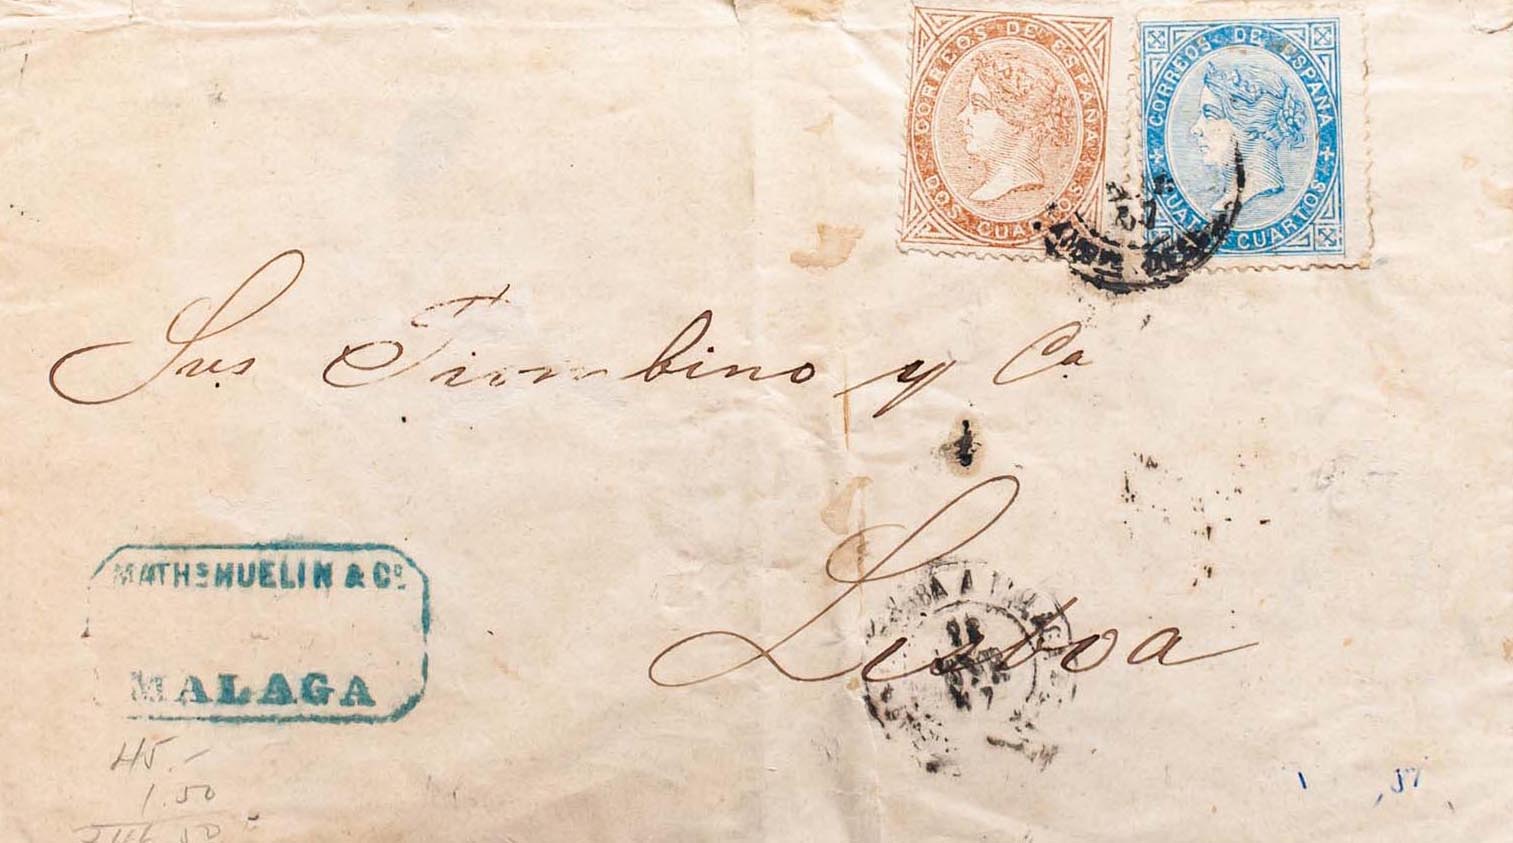 CORREOS DE ESPAÑA
DOS CUARTOS
CORREOS DE ESPAÑA
CUATRO CUARTOS
Sres Trombino y Ca
Lisboa
MATHS HUELIN & Co
MALAGA
45.-
1.50